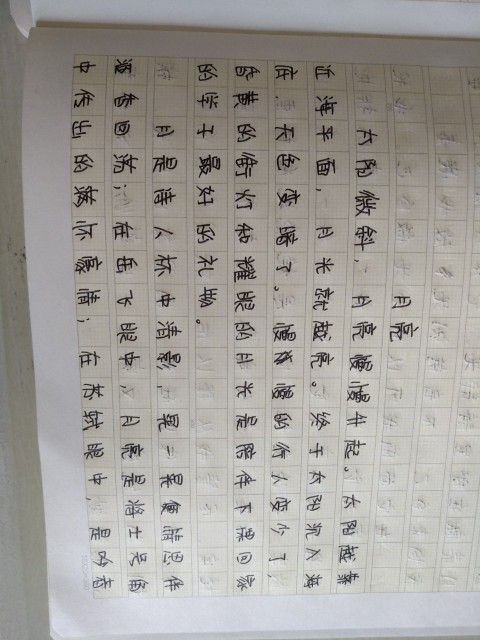 月亮
太阳微斜,月亮慢慢升起。太阳越靠
近海平面,月光就越亮。终于太阳沉入海
底,天色变暗了。慢慢的行人变少了,
昏黄的街灯和耀眼的月光是陪伴下课回家
的学子最好的礼物。
月是诗人杯中清影,是一 思伴
酒香回荡;在岳飞眼中,月亮是将士
中传出的 豪情;在苏轼眼中,是